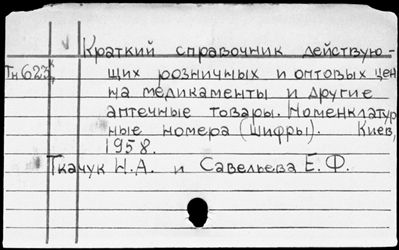 Краткий справочник действую-
Тн623, щих розничных и оптовых цен
на медикаменты и другие
аптечные товары. Номенклатур
ные номера (шифры). Киев,
1958.
Ткачук Н.А. и Савельева Е.Ф.